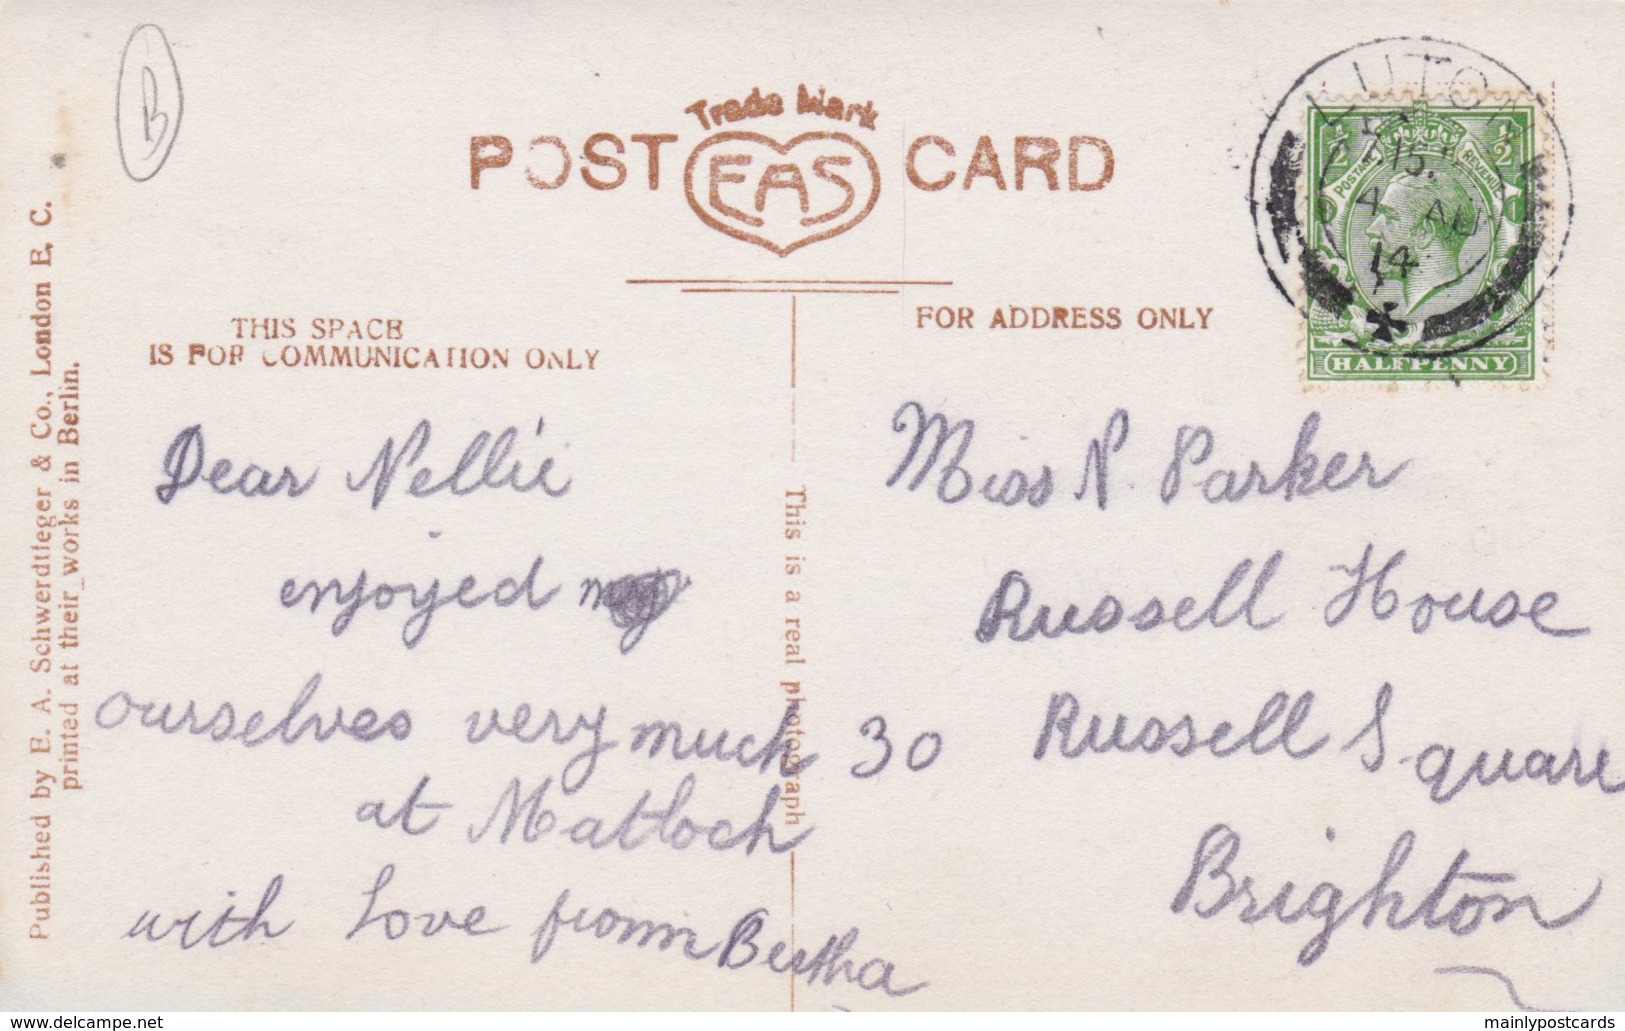 B
Trade Mark
POST EAS CARD
THIS SPACE
IS FOR COMMUNICATION ONLY
FOR ADDRESS ONLY
LUTON
15
4 AU
14
POSTAGE REVENUE
½ ½
HALFPENNY
Published by E. A. Schwerdtfeger & Co., London E. C.
printed at their works in Berlin.
This is a real photograph
Dear Nellie
enjoyed
ourselves very much
at Matloch
with Love from Bertha
Miss N. Parker
Russell House
30 Russell Square
Brighton
delcampe.net
mainlypostcards